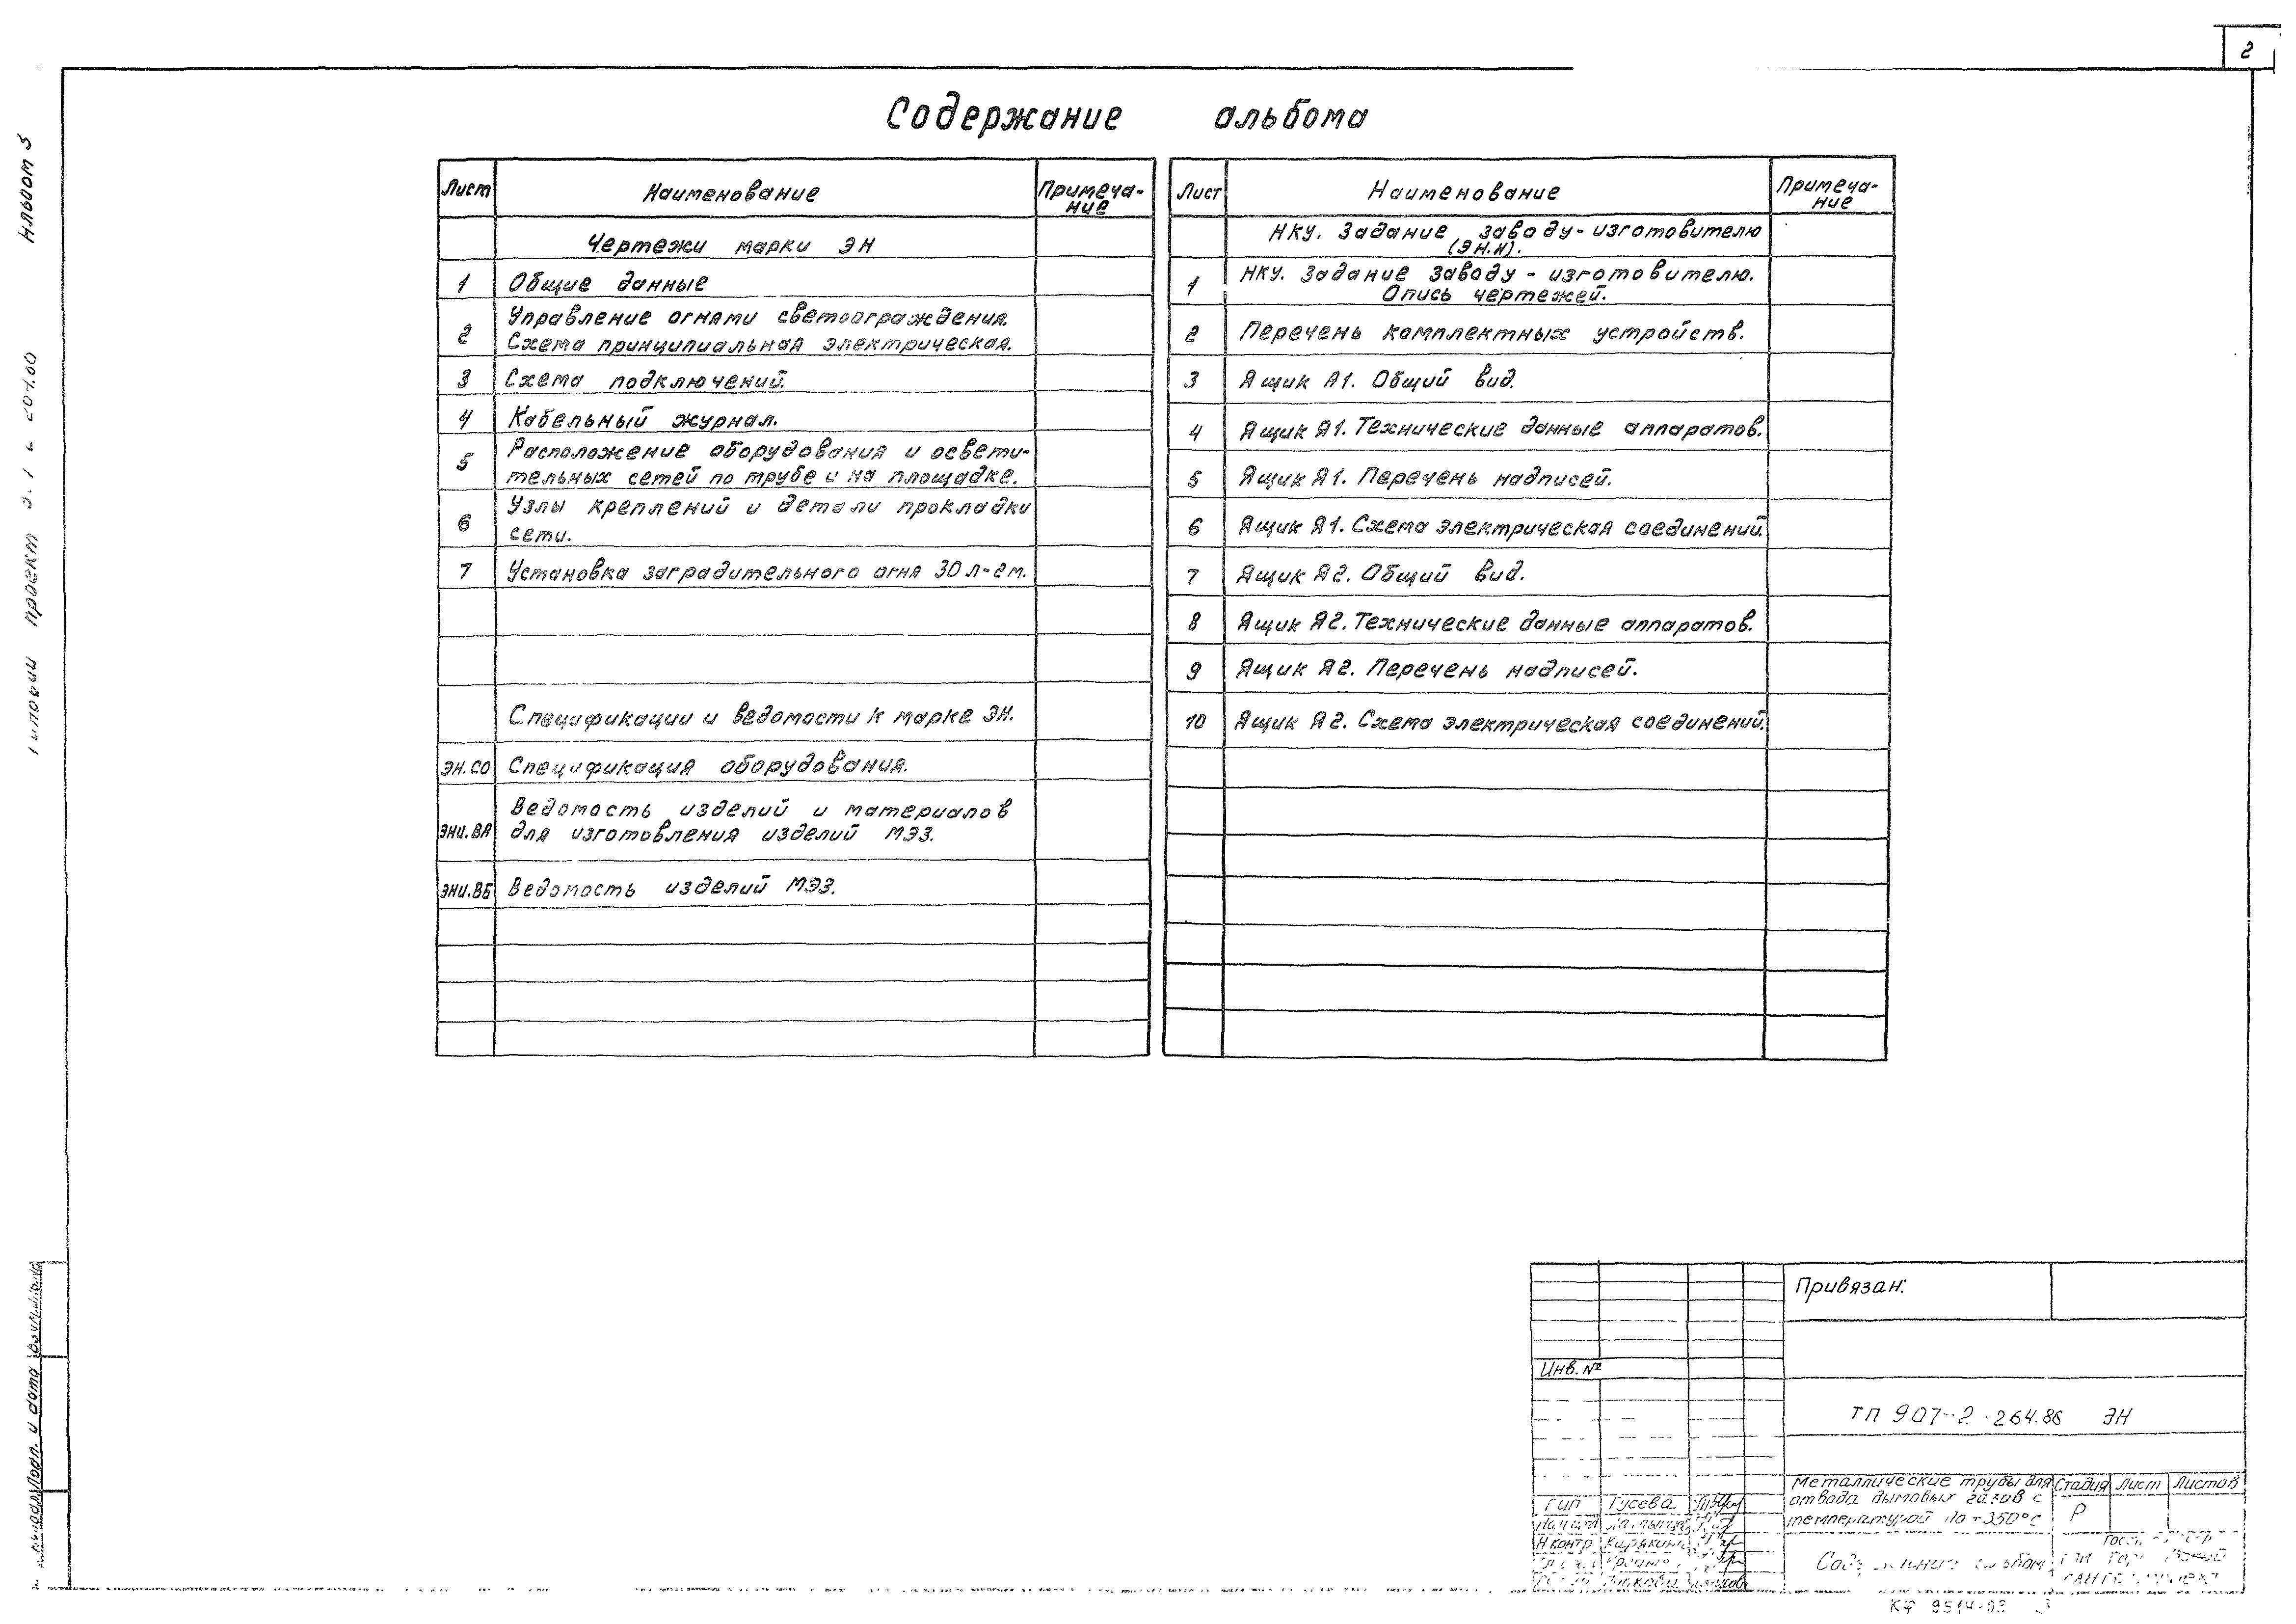 2
Содержание альбома
Альбом 3
Лист Наименование Примеча-
ние
Чертежи марки ЭН
1 Общие данные
2 Управление огнями светоограждения.
Схема принципиальная электрическая.
3 Схема подключений.
4 Кабельный журнал.
5 Расположение оборудования и освети-
тельных сетей по трубе и на площадке.
6 Узлы креплений и детали прокладки
сети.
7 Установка заградительного огня ЗОЛ-2м.
Спецификации и ведомости к марке ЭН.
ЭН.СО Спецификация оборудования.
ЭНИ.ВА Ведомость изделий и материалов
для изготовления изделий МЭЗ.
ЭНИ.ВБ Ведомость изделий МЭЗ.
Лист Наименование Примеча-
ние
НКУ. Задание заводу-изготовителю
(ЭН.Н).
1 НКУ. Задание заводу - изготовителю.
Опись чертежей.
2 Перечень комплектных устройств.
3 Ящик Я1. Общий вид.
4 Ящик Я1. Технические данные аппаратов.
5 Ящик Я1. Перечень надписей.
6 Ящик Я1. Схема электрическая соединений.
7 Ящик Я2. Общий вид.
8 Ящик Я2. Технические данные аппаратов.
9 Ящик Я2. Перечень надписей.
10 Ящик Я2. Схема электрическая соединений.
проект
Подп. и дата
Привязан:
Инв. №
ТП 907-2-264.86 ЭН
Металлические трубы для
отвода дымовых газов с
температурой до +350°С
Стадия Лист Листов
Р
ГИП Гусева
Н контр
КФ 9514-03 3